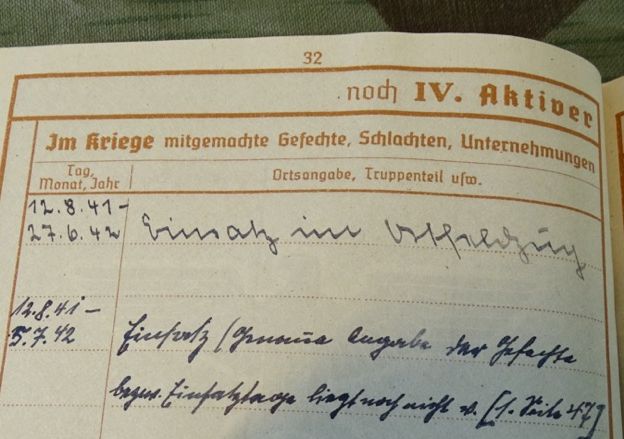 32
noch IV. Aktiver
Im Kriege mitgemachte Gefechte, Schlachten, Unternehmungen
Tag, Monat, Jahr
Ortsangabe, Truppenteil usw.
12.8.41-
27.6.42 Einsatz im Ostfeldzug
12.8.41 –
5.7.42 Einsatz (Genaue Angabe der Gefechte
bezw. Einsatztage liegt noch nicht v. [s. Seite 47]